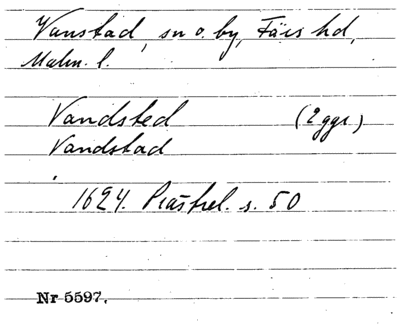 Vanstad, sn o. by, Färs hd,
Malm. l.
Vandsted (2 ggr)
Vandstad
1624. Prästrel. s. 50
Nr 5597.